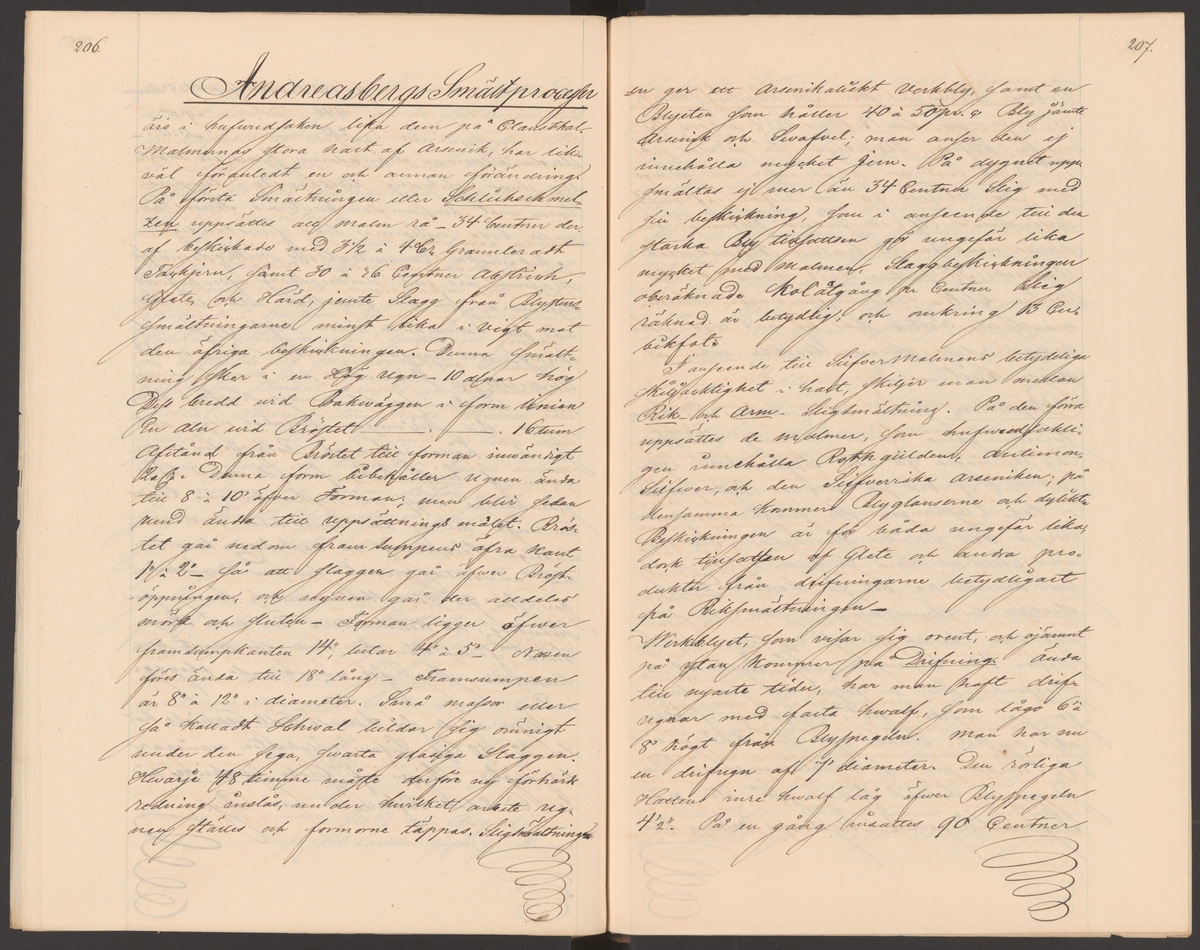 206.
Andreasbergs Smältprocesser
äro i hufwudsaken lika dem på Clausthal.
Malmernas stora halt af Arsenik, har lik-
väl föranledt en och annan förändring.
På första Smältningen eller Schlichschmel-
zen uppsättes all malm rå – 34 Centner der-
af beskickade med 3½ à 4 Ctr Granuleradt
Tackjern, samt 30 à 36 Centner Abstrich,
Glete, och Härd, jemte Slagg från Blystens-
smältningarne minst lika i vigt mot
den öfriga beskickningen. Denna smält-
ning sker i en Hög ugn – 10 alnar hög
Dess bredd wid Bakwäggen i form linien
En aln wid Bröstet 16 tum
Afstånd från Bröstet till forman inwändigt
Denna form bibehåller ugnen ända
till 8 à 10" öfwer Forman; men blir sedan
rund ända till uppsättnings målet. Brös-
tet går nedom framsumpens öfra kant
1½ à 2" – så att slaggen går öfwer Bröst-
öppningen, och ugnen går der alldeles
mörk och sluten – Forman ligger öfwer
framsumpkanten 14", lutar 4° à 5° – Nasen
föres ända till 18" lång – Framsumpen
är 8" à 12" i diameter. Små massor eller
så kalladt Schwal bildar sig ömnigt
under den sega, swarta glasiga Slaggen.
Hwarje 48 timme måste derföre ny förhärds
redning inslås, under hwilket arbete ug-
nen ställes och formorne täppas. Sligsmältningen
207.
en ger ett Arsenikaliskt Verkbly, samt en
Blysten som håller 40 à 50 pr. c. Bly jämte
Arsenik och Swafvel; man anser den ej
innehålla mycket Jern. På dygnet upp-
smältas ej mer än 34 Centner Slig med
sin beskickning, som i anseende till den
starka Bly tillsattsen gör ungefär lika
mycket med Malmen. Slaggbeskickningen
oberäknad. Kolåtgång pr Centner Slig
räknad är betydlig, och omkring 13 Cu-
bikfot.
I anseende till Silfver Malmens betydliga
skiljaktighet i halt, skiljer man mellan
Rik- och Arm- Sligsmältning. På den förra
uppsättes de malmer, som hufwudsakli-
gen innehålla Rothgülden, Antimon-
Silfwer, och den Silfverrika Arseniken; på
densamma kommer Blyglanserne och dylikt.
Beskickningen är för båda ungefär lika,
dock tillsatsen af Glete och andra pro-
dukter från drifningarne betydligast
på Riksmältningen –
Werkblyet, som visar sig orent, och ojämnt
på ytan kommer på Drifning. Ända
till nyaste tider, har man haft drif-
ugnar med fasta hwalf, som lågo 6 à
8" högt från Blyspegeln. Man har nu
en drifugn af 7' diameter. Den rörliga
Hattens inre hwalf låg öfwer Blyspegeln
4½". På en gång insättes 90 Centner